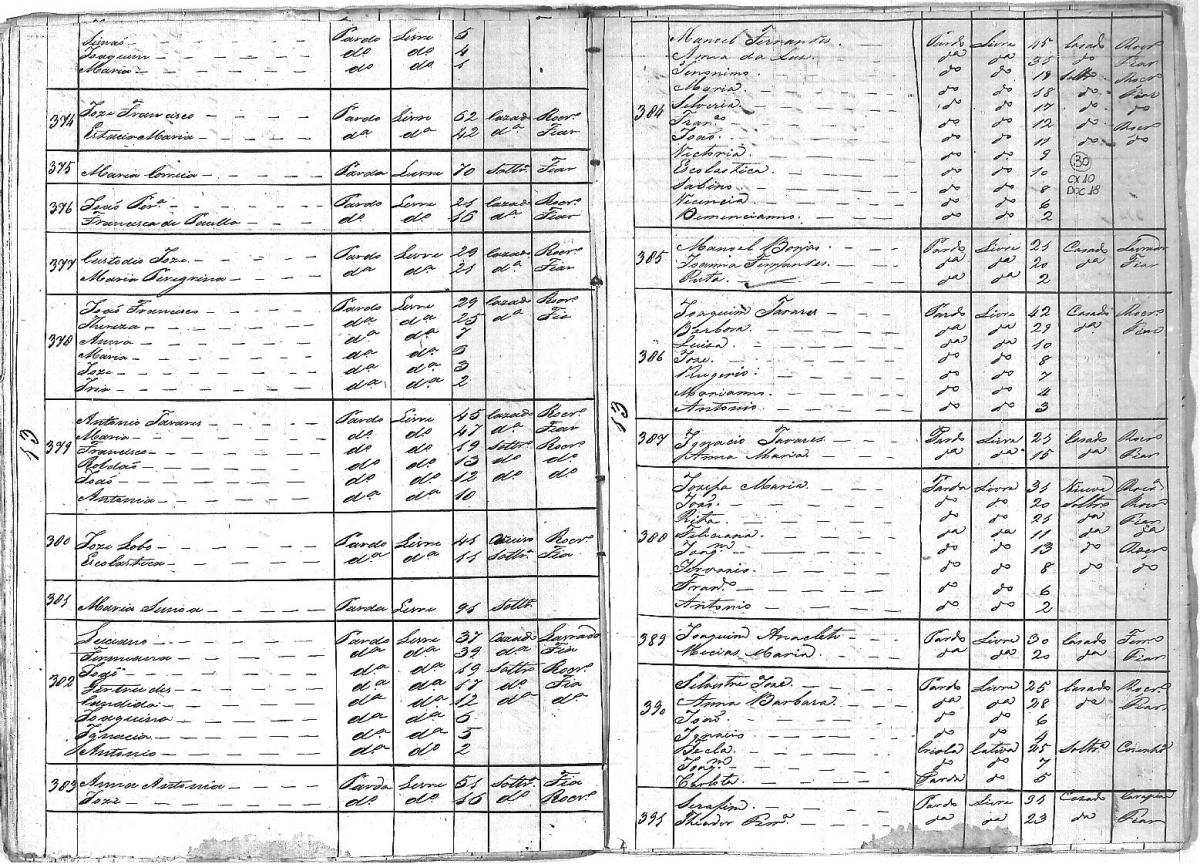 Pardo Livre 5
Joaquim dº dº 4
Maria dº dº 1
374 Joze Francisco Pardo Livre 52 Cazado Rocrº
Maria dª dª 42 dª Fiar
375 Maria Correia Parda Livre 70 Soltrª Fiar
376 João Perª Pardo Livre 21 Cazado Rocrº
Francisca de Paulla dª dª 16 dª Fiar
377 Custodio Joze Pardo Livre 29 Cazado Rocrº
Maria Peregrina dª dª 21 dª Fiar
378 João Francisco Pardo Livre 29 Cazado Rocrº
dª dª 25 dª Fia
Anna dª dª 7
Maria dª dª
Joze dº dº 3
dª dª 2
13
379 Antonio Tavares Pardo Livre 45 Cazado Rocrº
Maria dª dª 47 dª Fiar
Francisco dº dº 19 Soltrº Rocrº
Roldaõ dº dº 13 dº dº
João dº dº 12 dº dº
Antonia dª dª 10
380 Joze Lobo Pardo Livre 41 Rocrº
Escolastica dª dª 11 Soltrª Fia
381 Maria Parda Livre 91 Soltrª
382 Luciano Pardo Livre 37 Cazado Lavrado
dª dª 39 dª Fia
João dº dº 19 Soltro Rocrº
Gertrudes dª dª 17 dº Fia
Candida dª dª 12 dª dª
Joaquina dª dª 6
Ignacia dª dª 5
Antonio dº dº 2
383 Anna Antonia Parda Livre 51 Soltrª Fia
Joze dº dº 16 dº Rocrº
Manoel Fernandes Pardo Livre 45 Casado Rocrº
Anna da Luz dª dª 31 dº Fiar
Jeronimo dº dº 19 Soltro Rocrº
Maria dº dº 18 dº Fiar
384 Silveria dº dº 17 dº dº
Franco dº dº 12 dº Rocrº
João dº dº 11 dº dº
Victoria dº dº 9
Escolastica dº dº 10
Sabino dº dº 8
Vicencia dº dº 6
dº dº 2
30
CX10
Doc 18
385 Manoel Borjas Pardo Livre 21 Casado Lavrador
Joanna Fernandes dª dª 20 dª Fiar
Rita dª dª 2
386 Joaquim Tavares Pardo Livre 42 Casado Rocrº
Barbora dª dª 29 dª Fiar
Luisa dª dª 10
Joze dº dº 8
Rugerio dº dº 7
Marianno dº dº 4
Antonio dº dº 3
13
387 Ignacio Tavares Pardo Livre 21 Casado Rocrº
Anna Maria dª dª 15 dª Fiar
388 Jozefa Maria Parda Livre 31 Viuva Rocrº
João dº dº 20 Soltro Rocrº
Rita dº dº 21 dª Fiar
Feliciana dª dª 11 dª dª
Joaqm dº dº 13 dº Rocrº
dº dº 8 dº dº
Franco dº dº 6
Antonio dº dº 2
389 Joaquim Anacleto Pardo Livre 30 Casado Ferrº
Micias Maria dª dª 20 dª Fiar
390 Silvestre José Pardo Livre 25 Casado Rocrº
Anna Barbara dª dª 28 dª Fiar
João dº dº 6
Ignacio dº dº 4
Tecla Criola Cativa 25 Soltrª Cosinhª
Joaqm dº dº 7
Carlota Parda dº 5
391 Serafim Pardo Livre 31 Casado
dª dª 23 dª Fiar